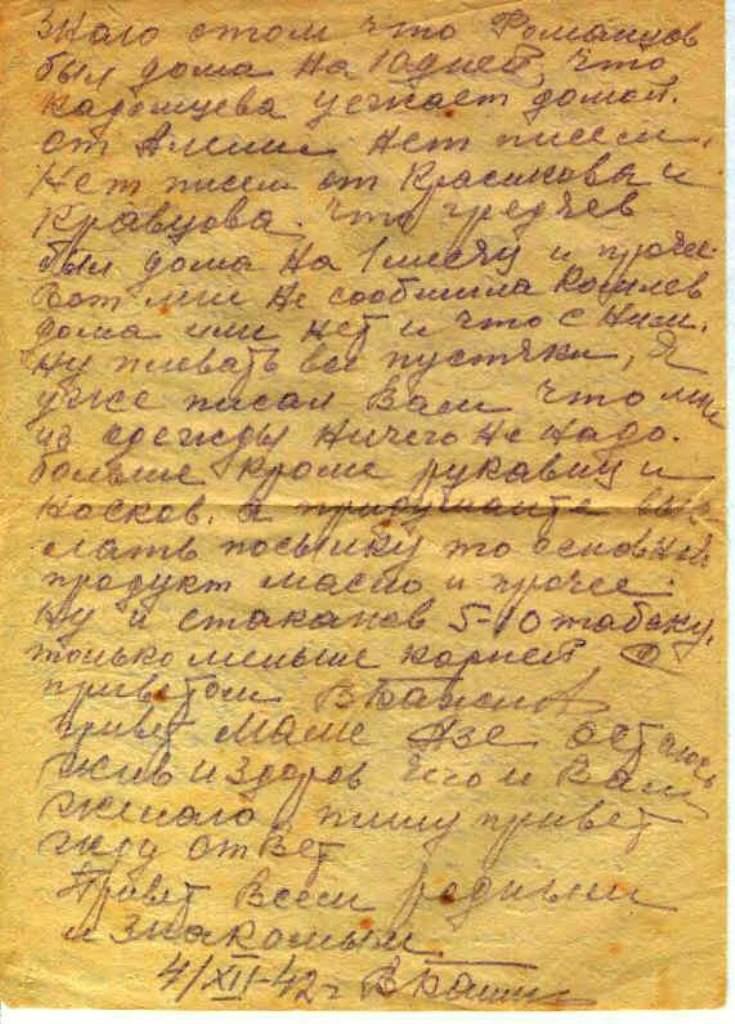 Знаю о том что Романцов
был дома на 10 дней, что
Кадомцева уезжает домой.
от Алеши нет писем,
Нет писем от Красикова и
Кравцова. что Гредчев
был дома на 1 месяц и прочее.
Вот мне не сообщила
дома или нет и что с ним.
Ну плевать все пустяки, я
уже писал Вам что мне
из одежды ничего не надо.
больше кроме рукавиц и
носков. а придумаете вы
слать посылку то основной
продукт масло и прочее.
Ну и стаканов 5-10 табаку,
только меньше корней. С
приветом В
привет маме Азе остаюсь
жив и здоров чего и Вам
желаю пишу привет
жду ответ
Привет Всем родным
и знакомым
4/XII-42 г В